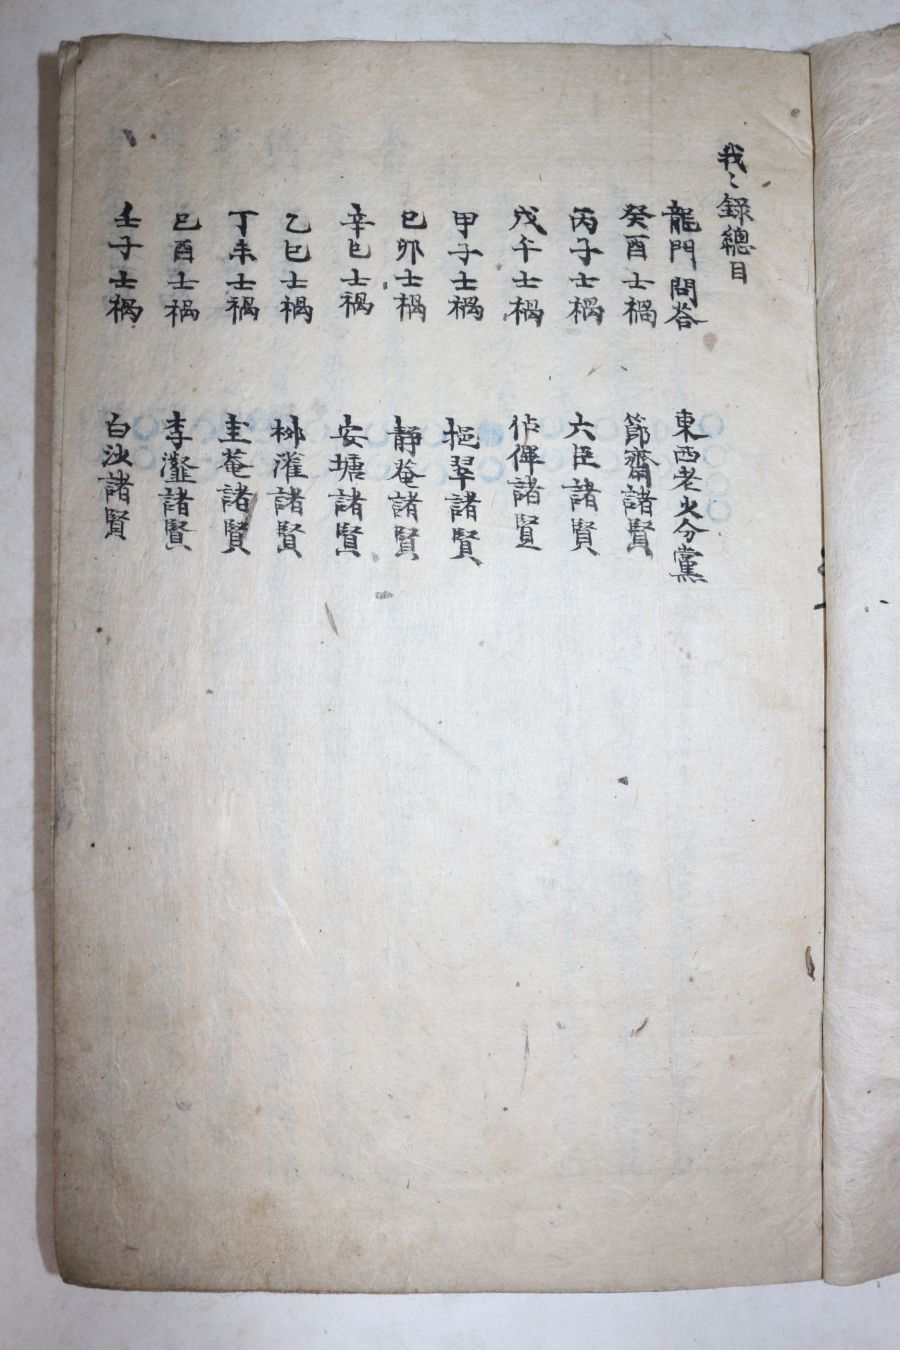 我〻録總目
龍門問答 東西老少分黨
癸酉士禍 節齋諸賢
丙子士禍 六臣諸賢
戊午士禍 佔俾諸賢
甲子士禍 挹翠諸賢
己卯士禍 靜菴諸賢
辛巳士禍 安塘諸賢
乙巳士禍 柳灌諸賢
丁未士禍 圭菴諸賢
己酉士禍 李瀣諸賢
壬子士禍 白沙諸賢